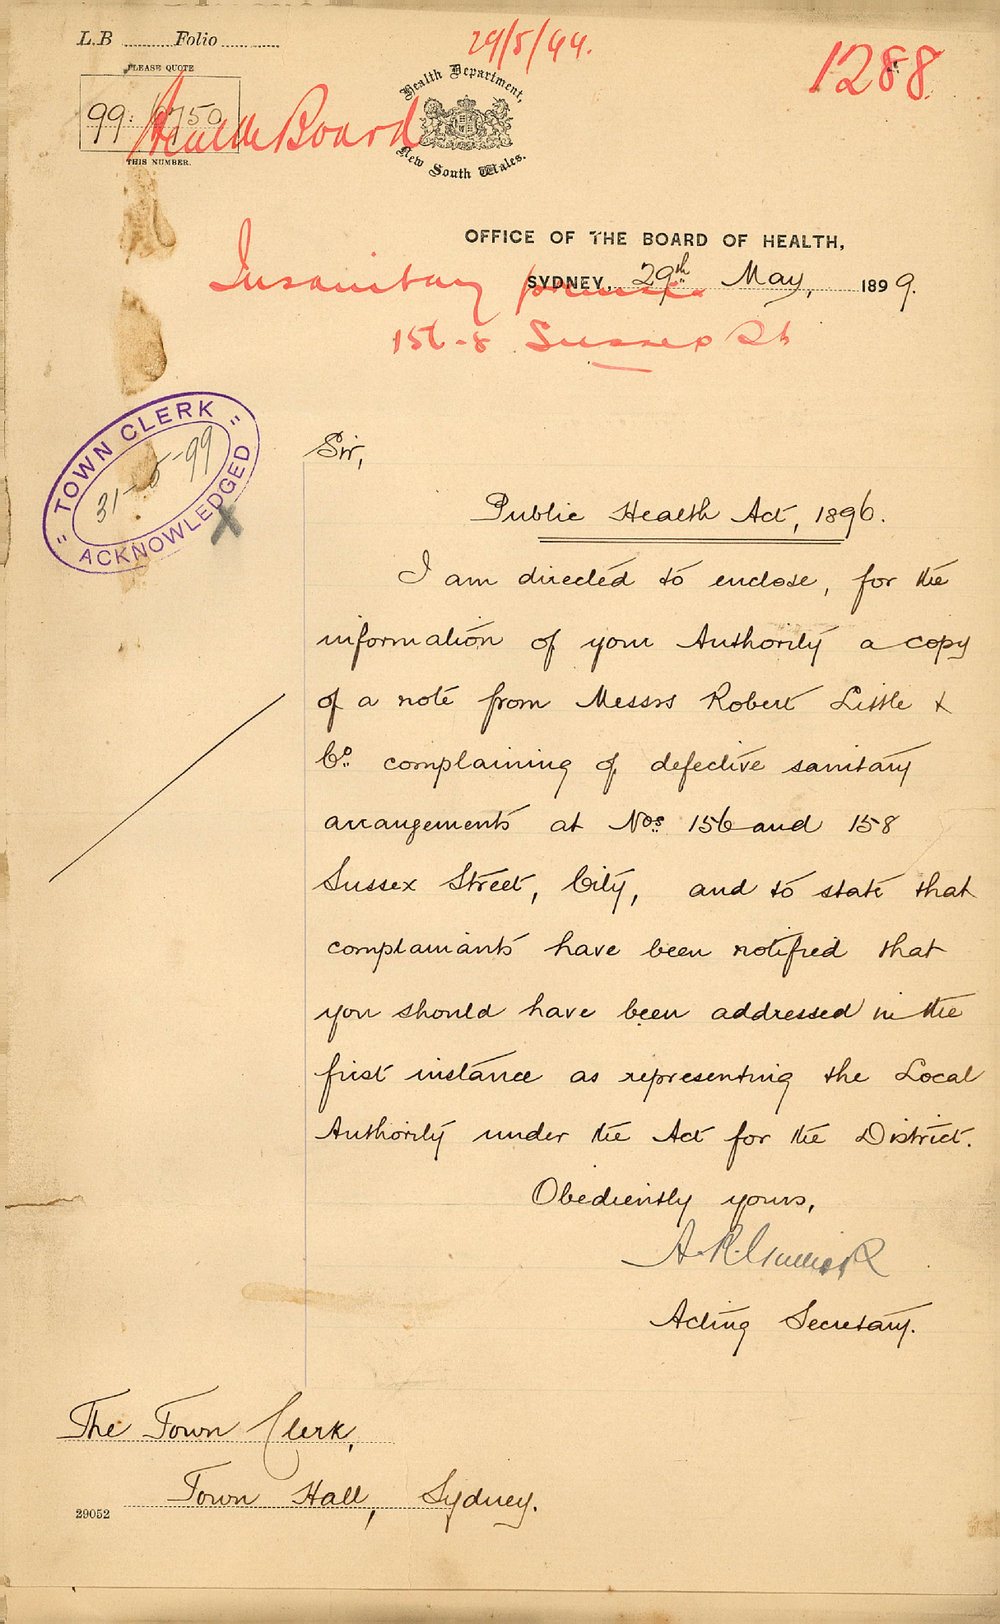 L.B ........ Folio ............
29/5/99.
1288
PLEASE QUOTE
99: 6750
THIS NUMBER.
Health Board
Health Department,
New South Wales.
OFFICE OF THE BOARD OF HEALTH,
SYDNEY, 29th May, 1899.
Insanitary premises
156-8 Sussex St
"TOWN CLERK"
31-5-99
ACKNOWLEDGED
X
Sir,
Public Health Act, 1896.
I am directed to enclose, for the
information of your Authority a copy
of a note from Messrs Robert Little &
Co. complaining of defective sanitary
arrangements at Nos. 156 and 158
Sussex Street, City, and to state that
complainants have been notified that
you should have been addressed in the
first instance as representing the Local
Authority under the Act for the District.
Obediently yours,
Acting Secretary.
The Town Clerk,
Town Hall, Sydney.
29052